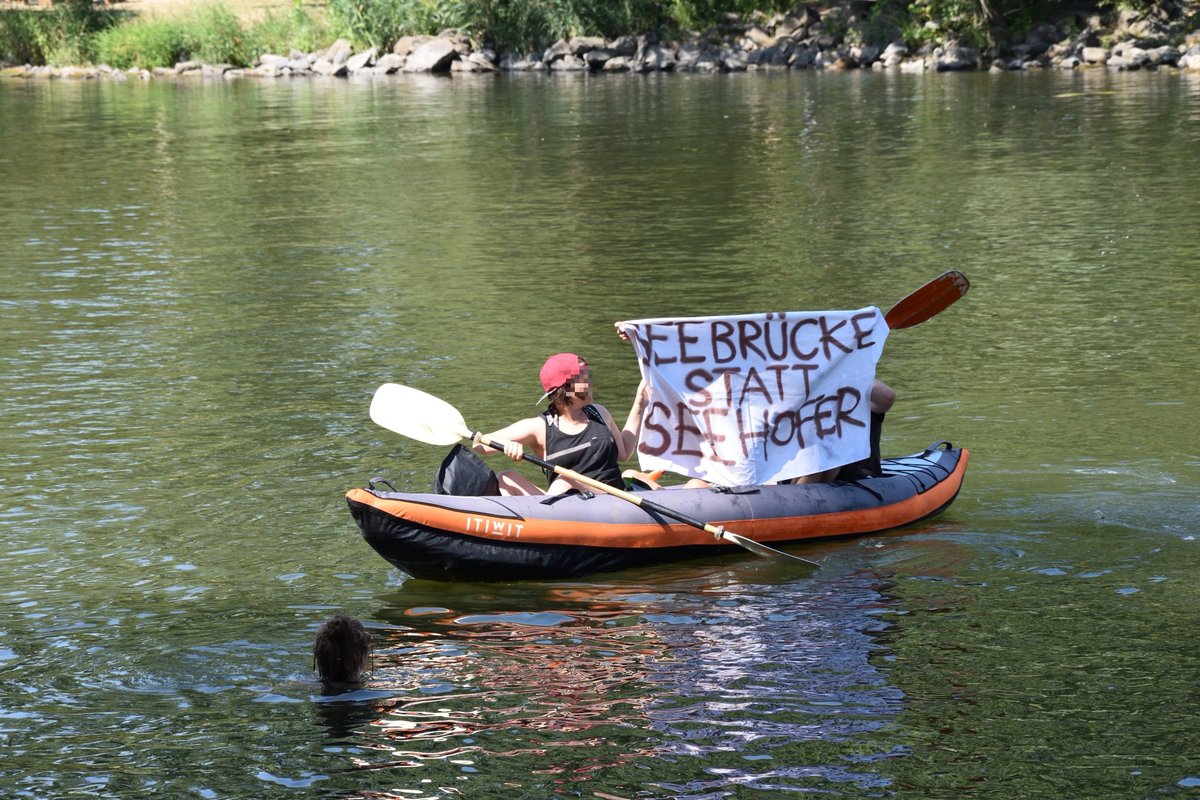 SEEBRÜCKE
STATT
SEEHOFER
ITIWIT